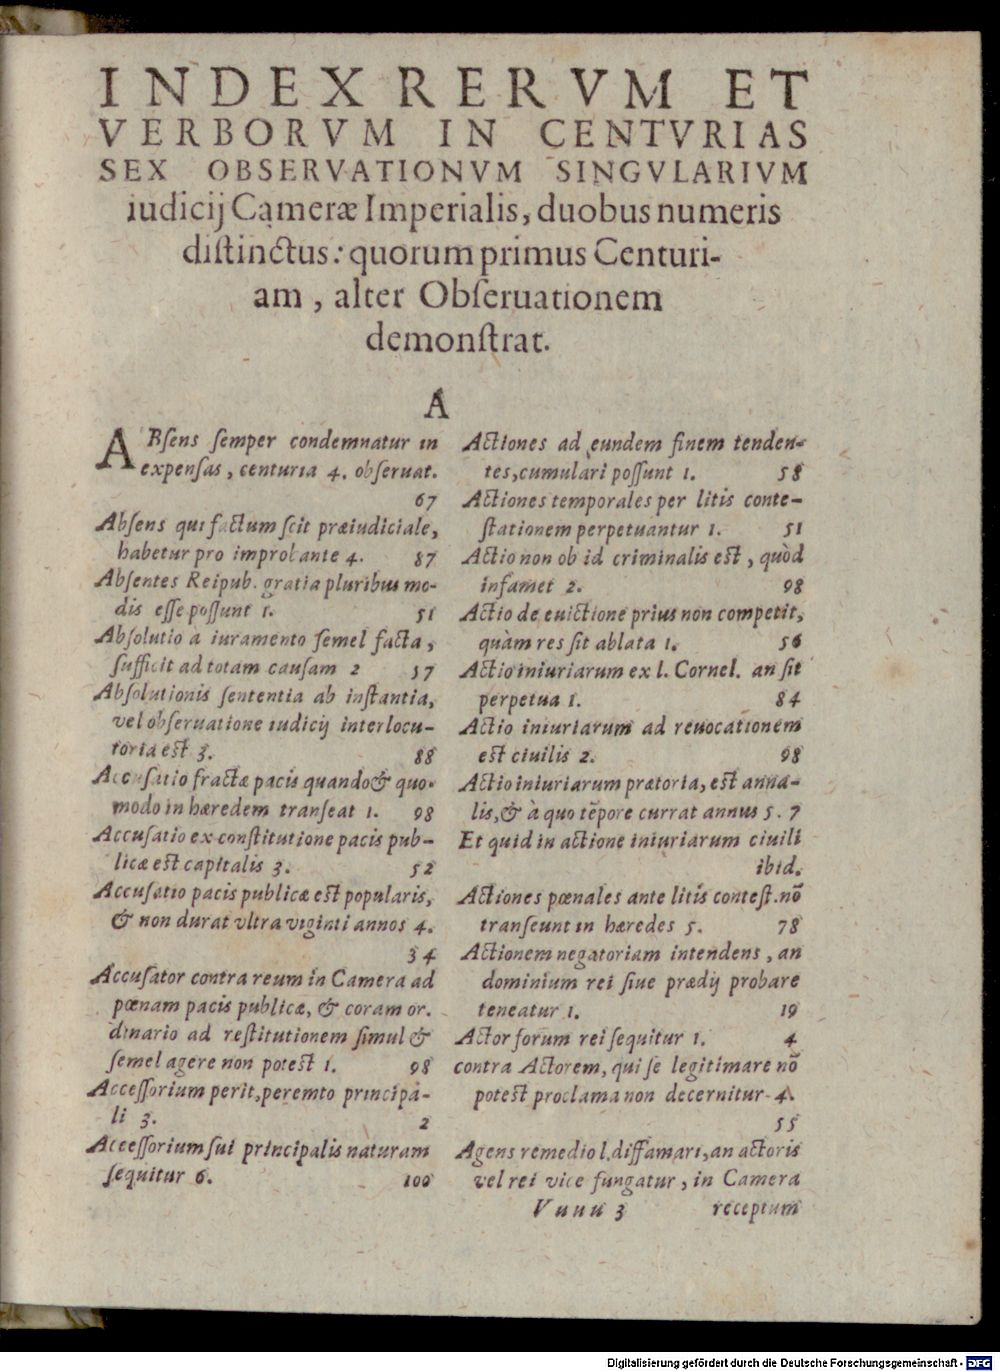 INDEX RERVM ET
VERBORVM IN CENTVRIAS
SEX OBSERVATIONVM SINGVLARIVM
iudicij Cameræ Imperialis, duobus numeris
distinctus: quorum primus Centuri-
am, alter Obseruationem
demonstrat.
A
ABsens semper condemnatur in
expensas, centuria 4. obseruat.
67
Absens qui factum scit præiudiciale,
habetur pro improbante 4. 87
Absentes Reipub. gratia pluribus mo-
dis esse possunt 1. 51
Absolutio a iuramento semel facta,
sufficit ad totam causam 2 57
Absolutionis sententia ab instantia,
vel obseruatione iudicij interlocu-
toria est 3. 88
Accusatio fractæ pacis quando & quo-
modo in hæredem transeat 1. 98
Accusatio ex constitutione pacis pub-
licæ est capitalis 3. 52
Accusatio pacis publicæ est popularis,
& non durat vltra viginti annos 4.
34
Accusator contra reum in Camera ad
pœnam pacis publicæ, & coram or-
dinario ad restitutionem simul &
semel agere non potest 1. 98
Accessorium perit, peremto principa-
li 3. 2
Aceessorium sui principalis naturam
sequitur 6. 100
Actiones ad eundem finem tenden-
tes, cumulari possunt 1. 58
Actiones temporales per litis conte-
stationem perpetuantur 1. 51
Actio non ob id criminalis est, quòd
infamet 2. 98
Actio de euictione prius non competit,
quàm res sit ablata 1. 56
Actio iniuriarum ex l. Cornel. an sit
perpetua 1. 84
Actio iniuriarum ad reuocationem
est ciuilis 2. 98
Actio iniuriarum prætoria, est anna-
lis, & à quo tēpore currat annus 5. 7
Et quid in actione iniuriarum ciuili
ibid.
Actiones pœnales ante litis contest. nō
transeunt in hæredes 5. 78
Actionem negatoriam intendens, an
dominium rei siue prædij probare
teneatur 1. 19
Actor forum rei sequitur 1. 4
contra Actorem, qui se legitimare nō
potest proclama non decernitur 4.
55
Agens remedio l. diffamari, an actoris
vel rei vice fungatur, in Camera
Vuuu 3 receptum
Digitalisierung gefördert durch die Deutsche Forschungsgemeinschaft - DFG